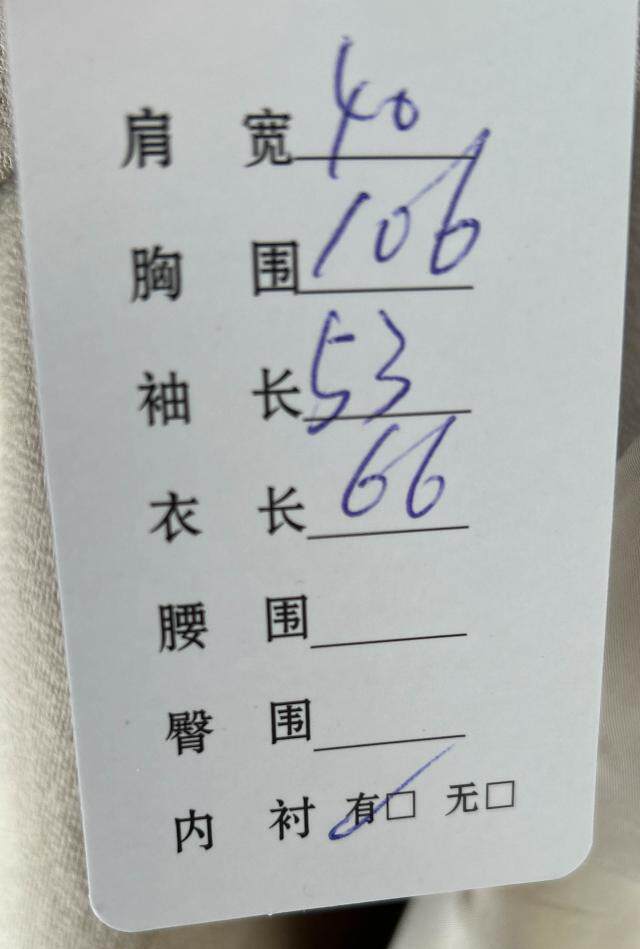 肩 宽 40
胸 围 106
袖 长 53
衣 长 66
腰 围
臀 围
内 衬 有☑ 无□